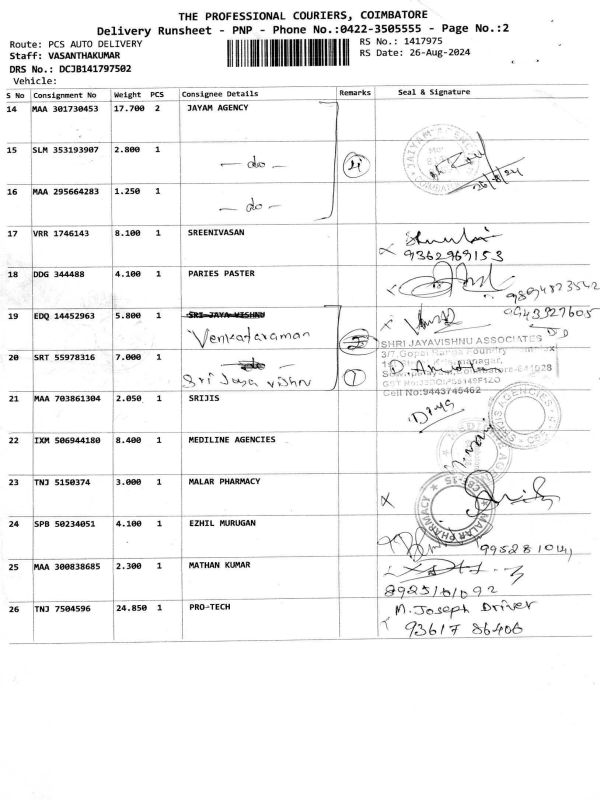 THE PROFESSIONAL COURIERS, COIMBATORE
Delivery Runsheet - PNP - Phone No.:0422-3505555 - Page No.:2
Route: PCS AUTO DELIVERY
RS No.: 1417975
Staff: VASANTHAKUMAR
RS Date: 26-Aug-2024
DRS No.: DCJB141797502
Vehicle:
S No Consignment No Weight PCS Consignee Details Remarks Seal & Signature
14 MAA 301730453 17.700 2 JAYAM AGENCY
15 SLM 353193907 2.800 1 — do —
16 MAA 295664283 1.250 1 — do —
26/8/24
17 VRR 1746143 8.100 1 SREENIVASAN
9362969153
18 DDG 344488 4.100 1 PARIES PASTER
19 EDQ 14452963 5.800 1 SRI JAYA VISHNU
Venkataraman
SHRI JAYAVISHNU ASSOCIATES
20 SRT 55978316 7.000 1
Sri Jaya vishnu
Cell No:9443745462
21 MAA 703861304 2.050 1 SRIJIS
22 IXM 506944180 8.400 1 MEDILINE AGENCIES
23 TNJ 5150374 3.000 1 MALAR PHARMACY
MALAR PHARMACY
24 SPB 50234051 4.100 1 EZHIL MURUGAN
25 MAA 300838685 2.300 1 MATHAN KUMAR
26 TNJ 7504596 24.850 1 PRO-TECH
M. Joseph Driver
93617 86406